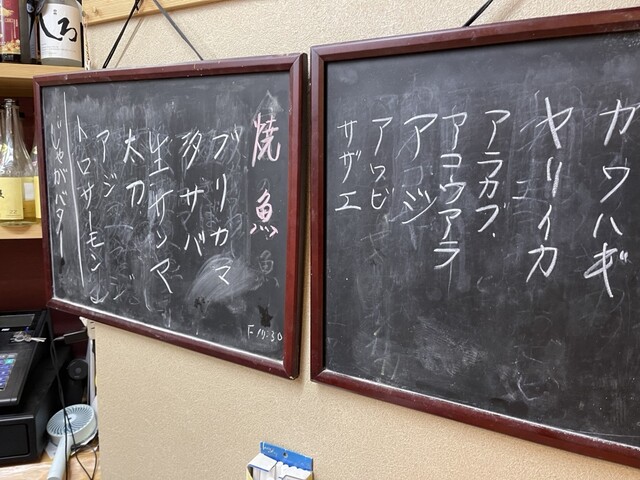 カワハギ
ヤリイカ
アラカブ
アコウアラ
アジ
アワビ
サザエ
焼魚
ブリカマ
サバ
生サンマ
太刀
アジ
トロサーモン
じゃがバター